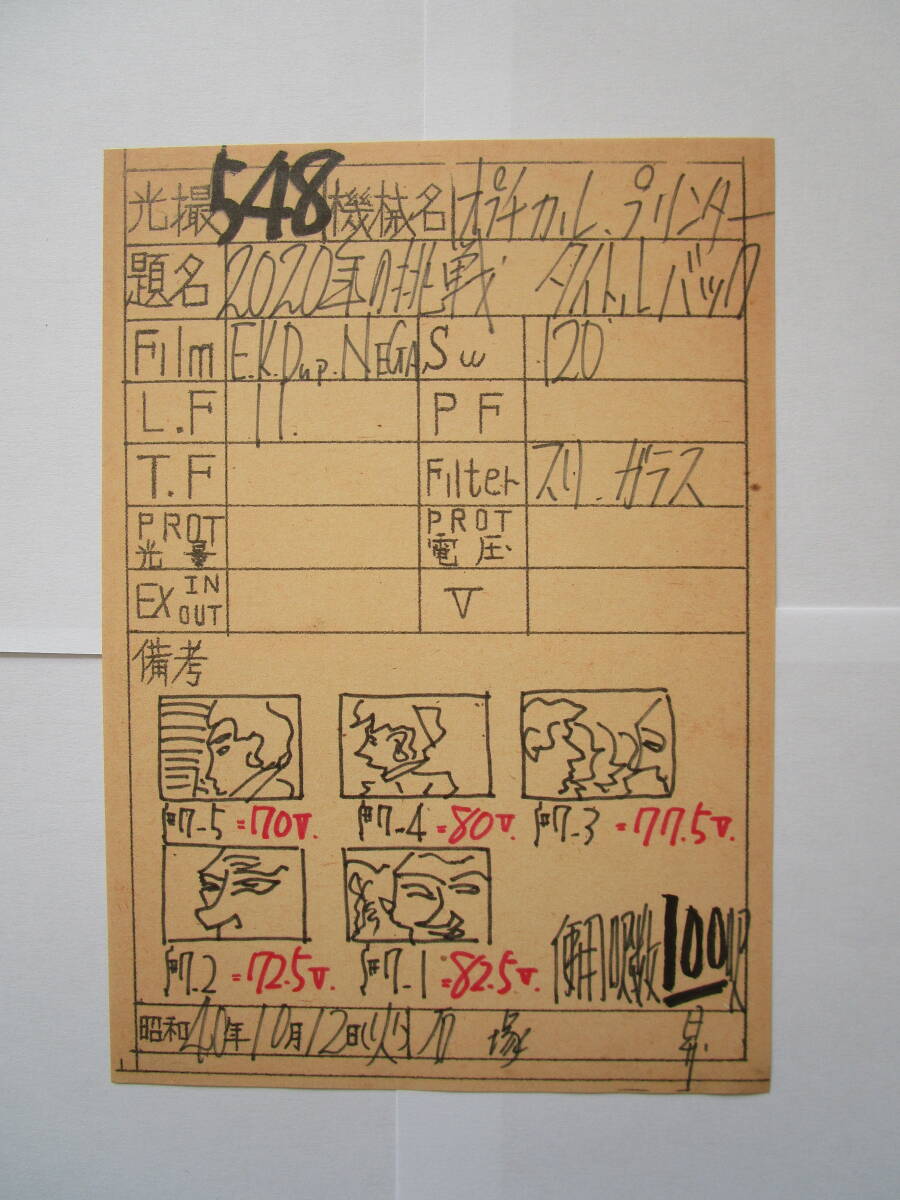 光撮 548 機械名 オプチカル.プリンター
題名 2020年の挑戦 タイトルバック
Film E.K.Dup.NEGA. Sw 120
L.F 11. PF
T.F Filter スリ.ガラス
PROT光量 PROT電圧
EX IN OUT V
備考
#7-5=70V. #7-4=80V. #7-3=77.5V.
#7.2=72.5V #7-1=82.5V. 使用呎数100呎
昭和40年10月12日(火) 石塚 昇.